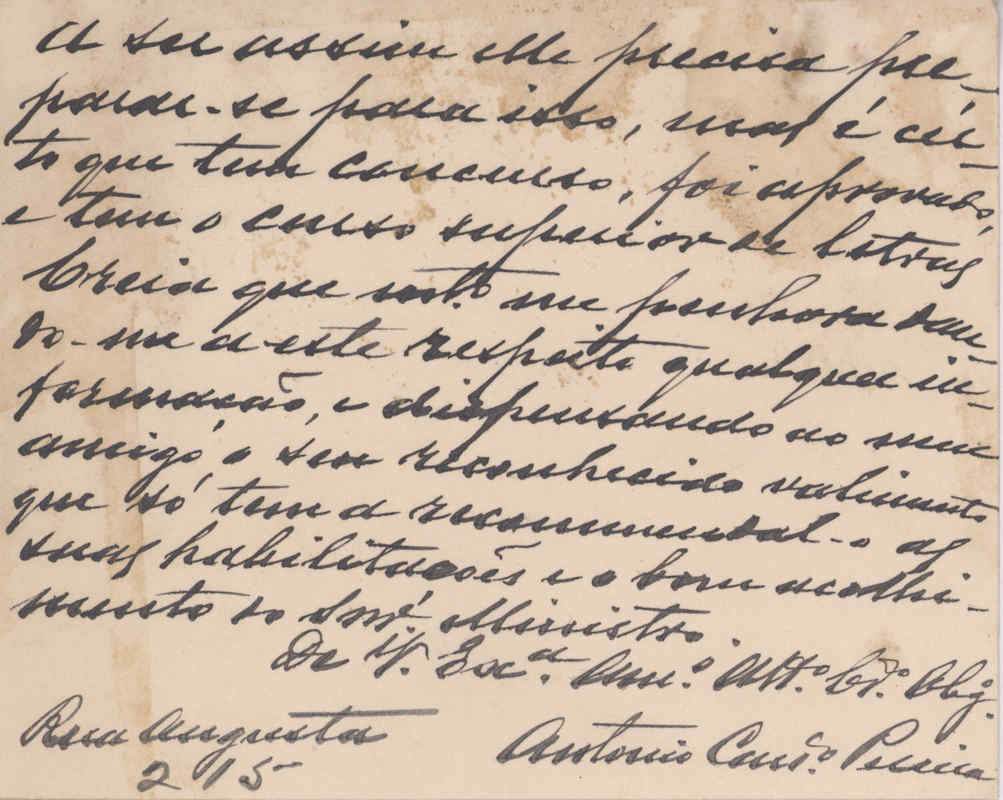 A ser assim elle precisa pre-
parar-se para isso, mas é cer-
to que tem concurso, foi aprovado,
e tem o curso superior de letras
Creia que mt.º me penhora dan-
do-me a este respeito qualquer in-
formação, e dispensando ao meu
amigo, o seu reconhecido valimento
que só tem a recommendal-o as
suas habilitações e o bom acolhi-
mento do Snr. Ministro.
De V. Ex.ª Am.º Att.º Cr.º Obg.º
Rua Augusta
215
Antonio Pereira